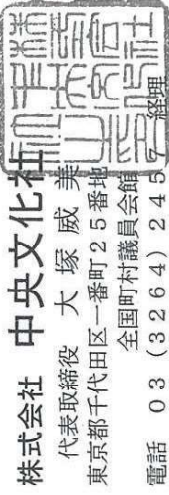 株式会社 中央文化社
代表取締役 大塚威美
東京都千代田区一番町25番地
全国町村議員会館
電話 03(3264)245 経理